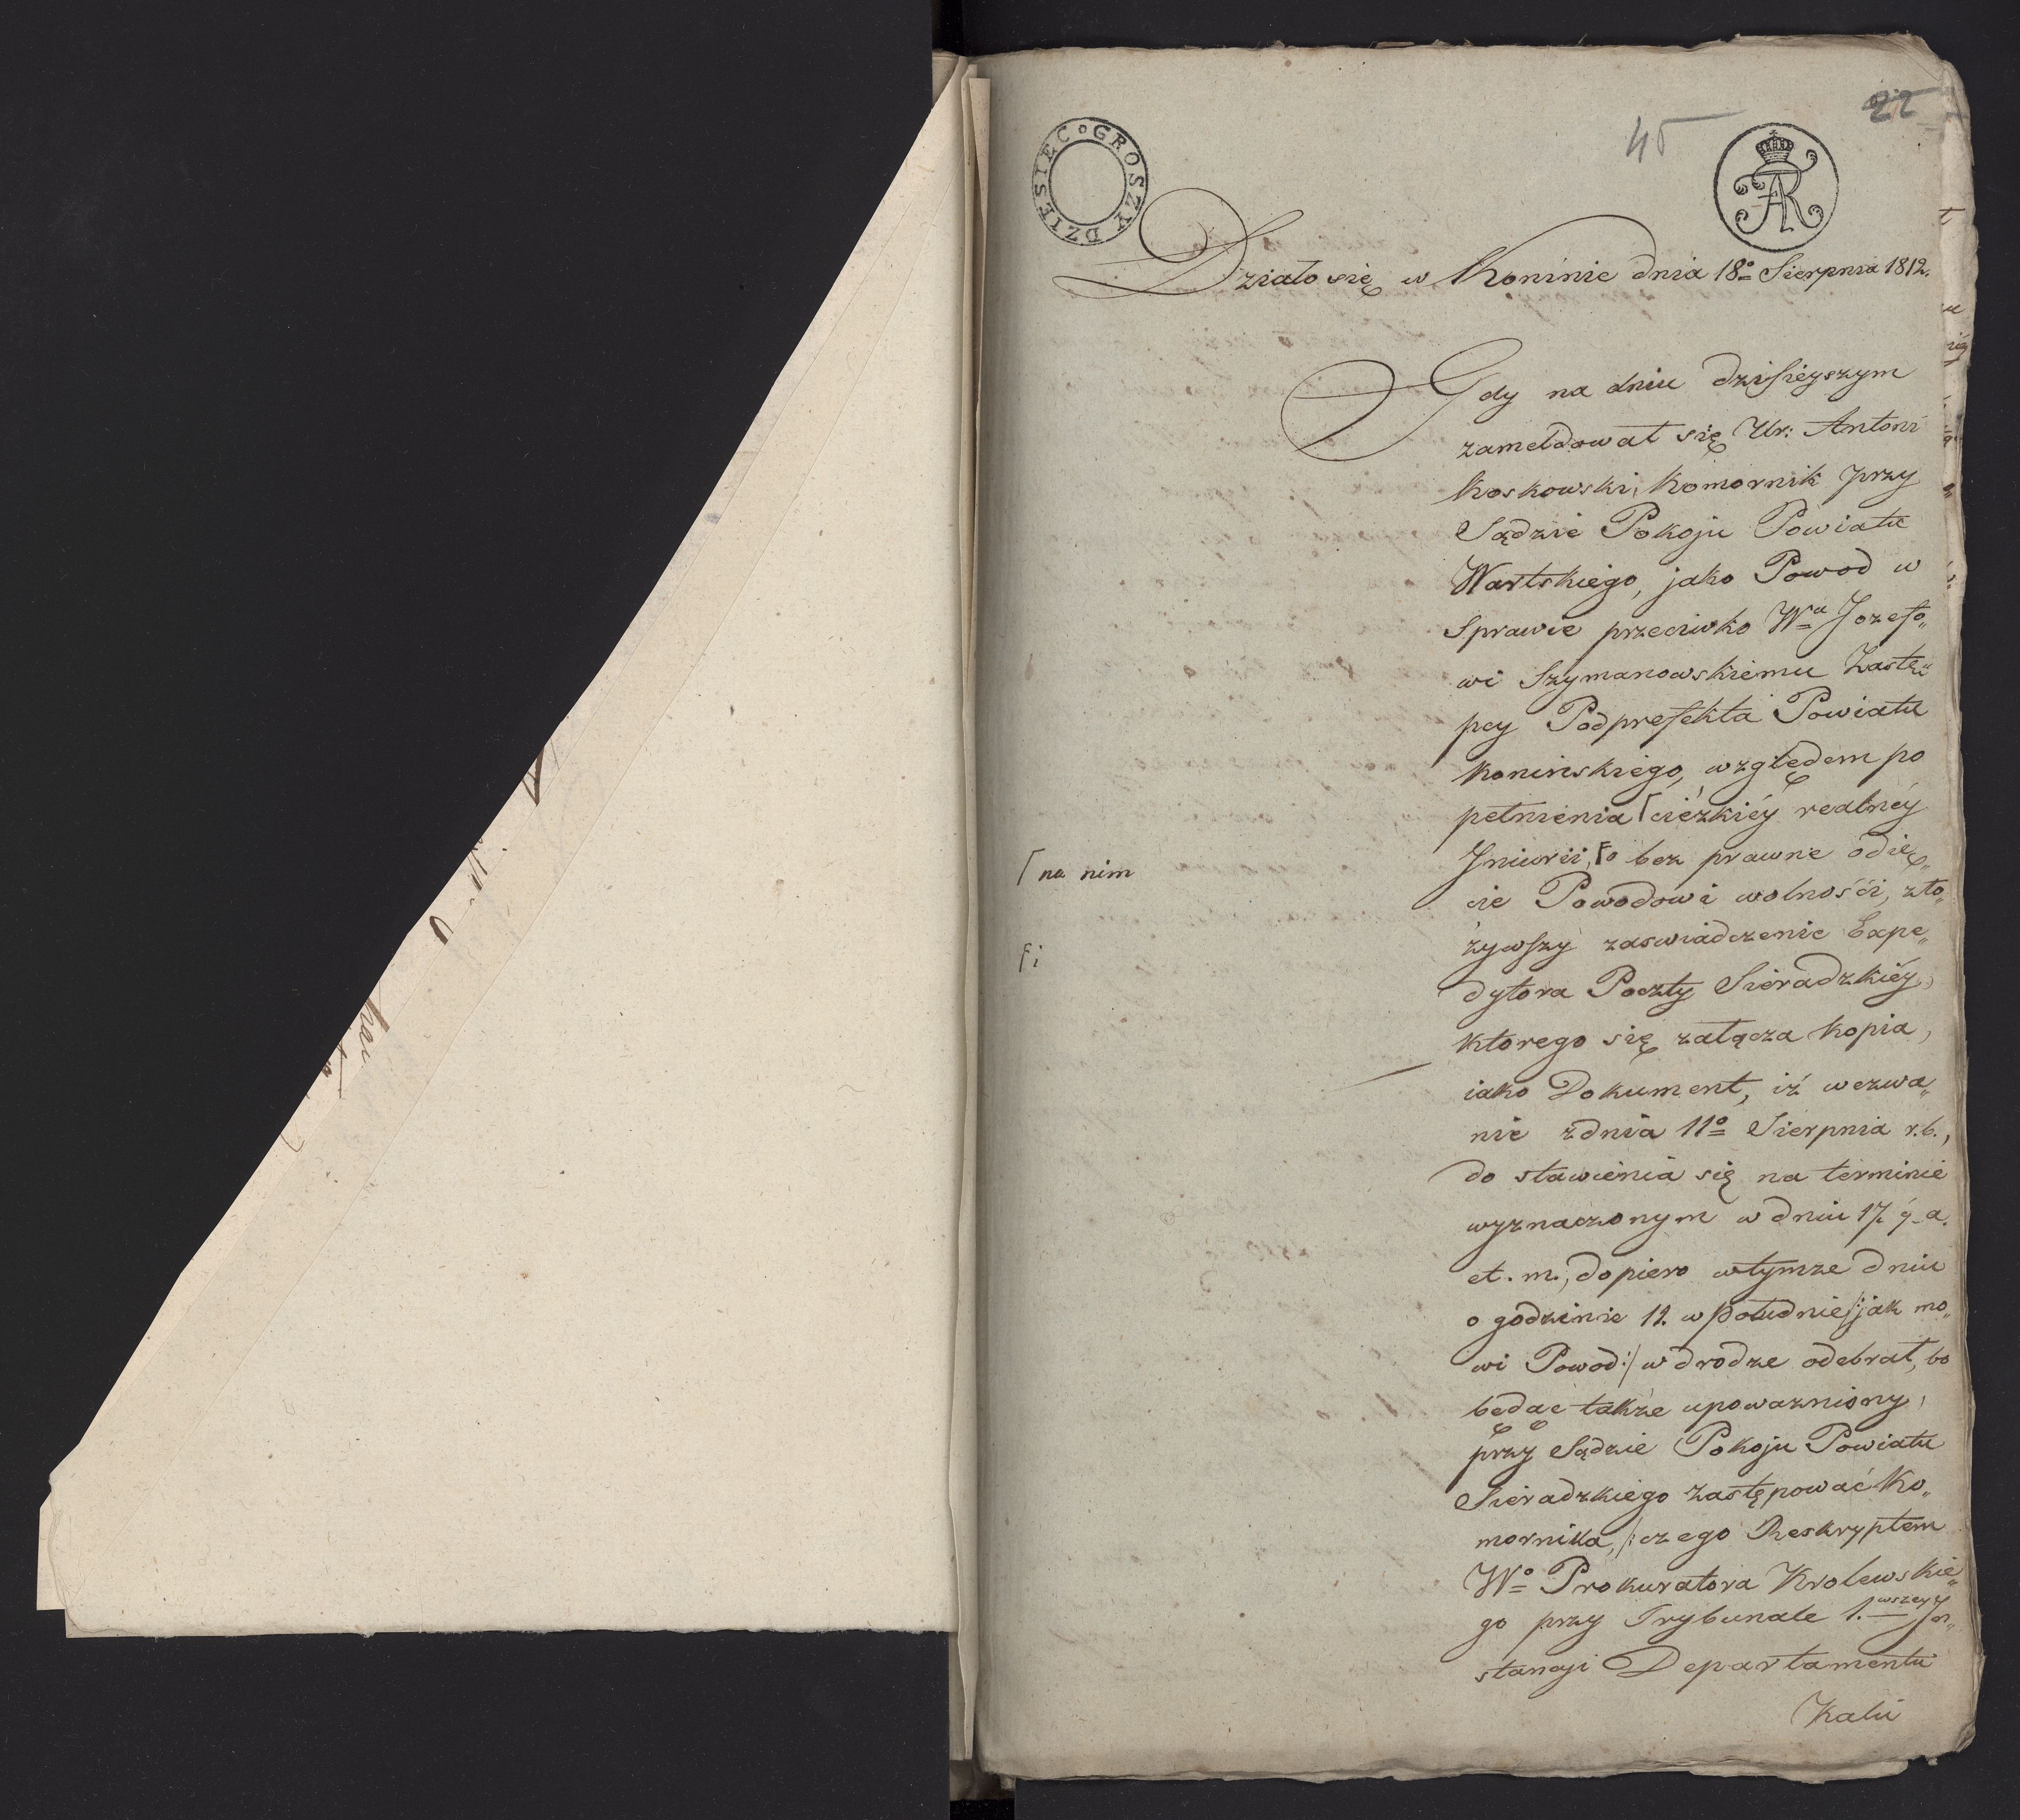 22
45
DZIESIEC o GROSZY
Działo się w Koninie dnia 18o Sierpnia 1812.
Gdy na dniu dzisieyszym
zameldował się Ur: Antoni
Koskowski, Komornik przy
Sądzie Pokoju Powiatu
Wartskiego, jako Powod w
Sprawie przeciwko Wa Jozefo„
wi Szymanowskiemu Zastę„
pcy Podprefekta Powiatu
Konińskiego, względem po
pełnienia ⌈ cięzkiéy realnéy
Jniurii, F o bez prawne odię„
cie Powodowi wolności, zło„
żywszy zaswiadczenie Expe„
dytora Poczty Sieradzkiéy,
ktorego się załącza kopia,
iako Dokument, iż wezwa„
nie zdnia 11o Sierpnia r.b.,
do stawienia się na terminie
wyznaczonym w dniu 17.
et. m., dopiero wtymze dniu
o godzinie 11. w południe /:jak mo„
wi Powod:/ w drodze odebrał, bo
będąc także upowazniony,
przy Sądzie Pokoju Powiatu
Sieradzkiego zastępować Ko„
mornika, /:czego Reskryptem
Wo Prokuratora Krolewskie„
go przy Trybunale 1.wszey Jn„
stancji Departamentu
Kali
⌈ na nim
F i